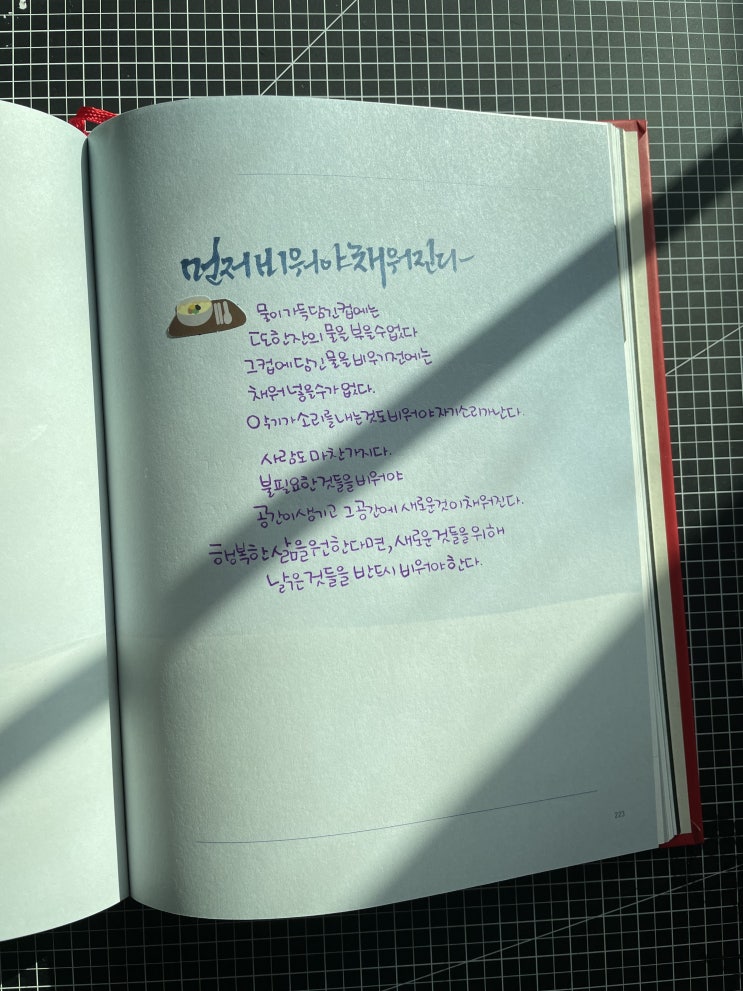 먼저 비워야 채워진다
물이 가득 담긴 컵에는
또 한잔의 물을 부을 수 없다
그 컵에 담긴 물을 비우기 전에는
채워 넣을 수가 없다.
악기가 소리를 내는 것도 비워야 자기 소리가 난다.
사람도 마찬가지다.
불필요한 것들을 비워야
공간이 생기고 그 공간에 새로운 것이 채워진다.
행복한 삶을 원한다면, 새로운 것들을 위해
낡은 것들을 반드시 비워야 한다.
223